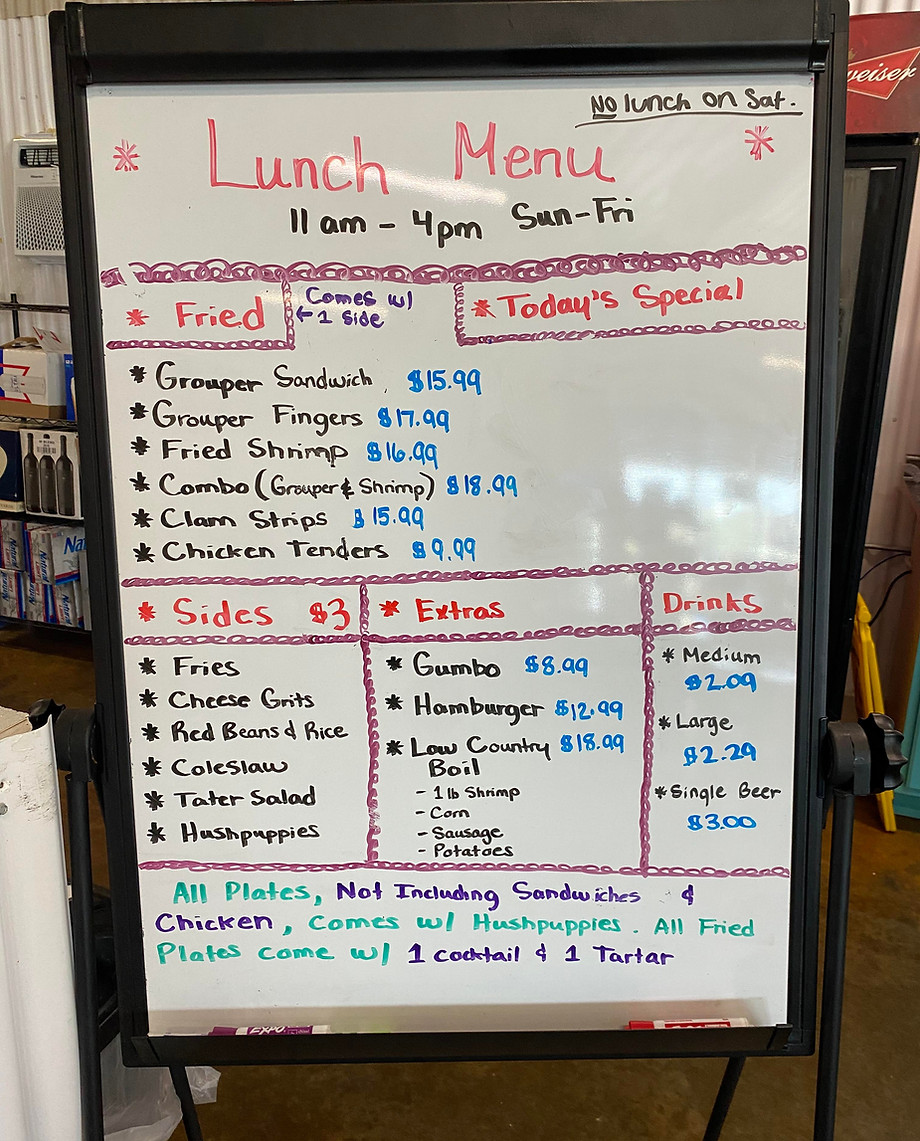 No lunch on Sat.
* Lunch Menu *
11 am - 4pm Sun-Fri
* Fried
Comes w/
← 1 side
* Today's Special
* Grouper Sandwich $15.99
* Grouper Fingers $17.99
* Fried Shrimp $16.99
* Combo (Grouper & Shrimp) $18.99
* Clam Strips $15.99
* Chicken Tenders $9.99
* Sides $3
* Fries
* Cheese Grits
* Red Beans & Rice
* Coleslaw
* Tater Salad
* Hushpuppies
* Extras
* Gumbo $8.99
* Hamburger $12.99
* Low Country $18.99
Boil
- 1 lb Shrimp
- Corn
- Sausage
- Potatoes
Drinks
* Medium
$2.09
* Large
$2.29
* Single Beer
$3.00
All Plates, Not Including Sandwiches &
Chicken, Comes w/ Hushpuppies. All Fried
Plates come w/ 1 cocktail & 1 Tartar
EXPO
weiser
Natural
Na